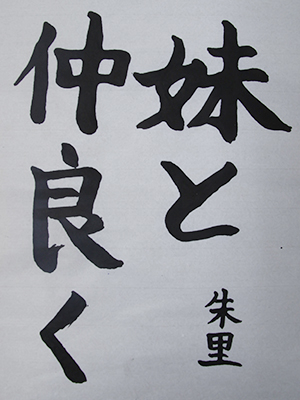 妹と
仲良く
朱里